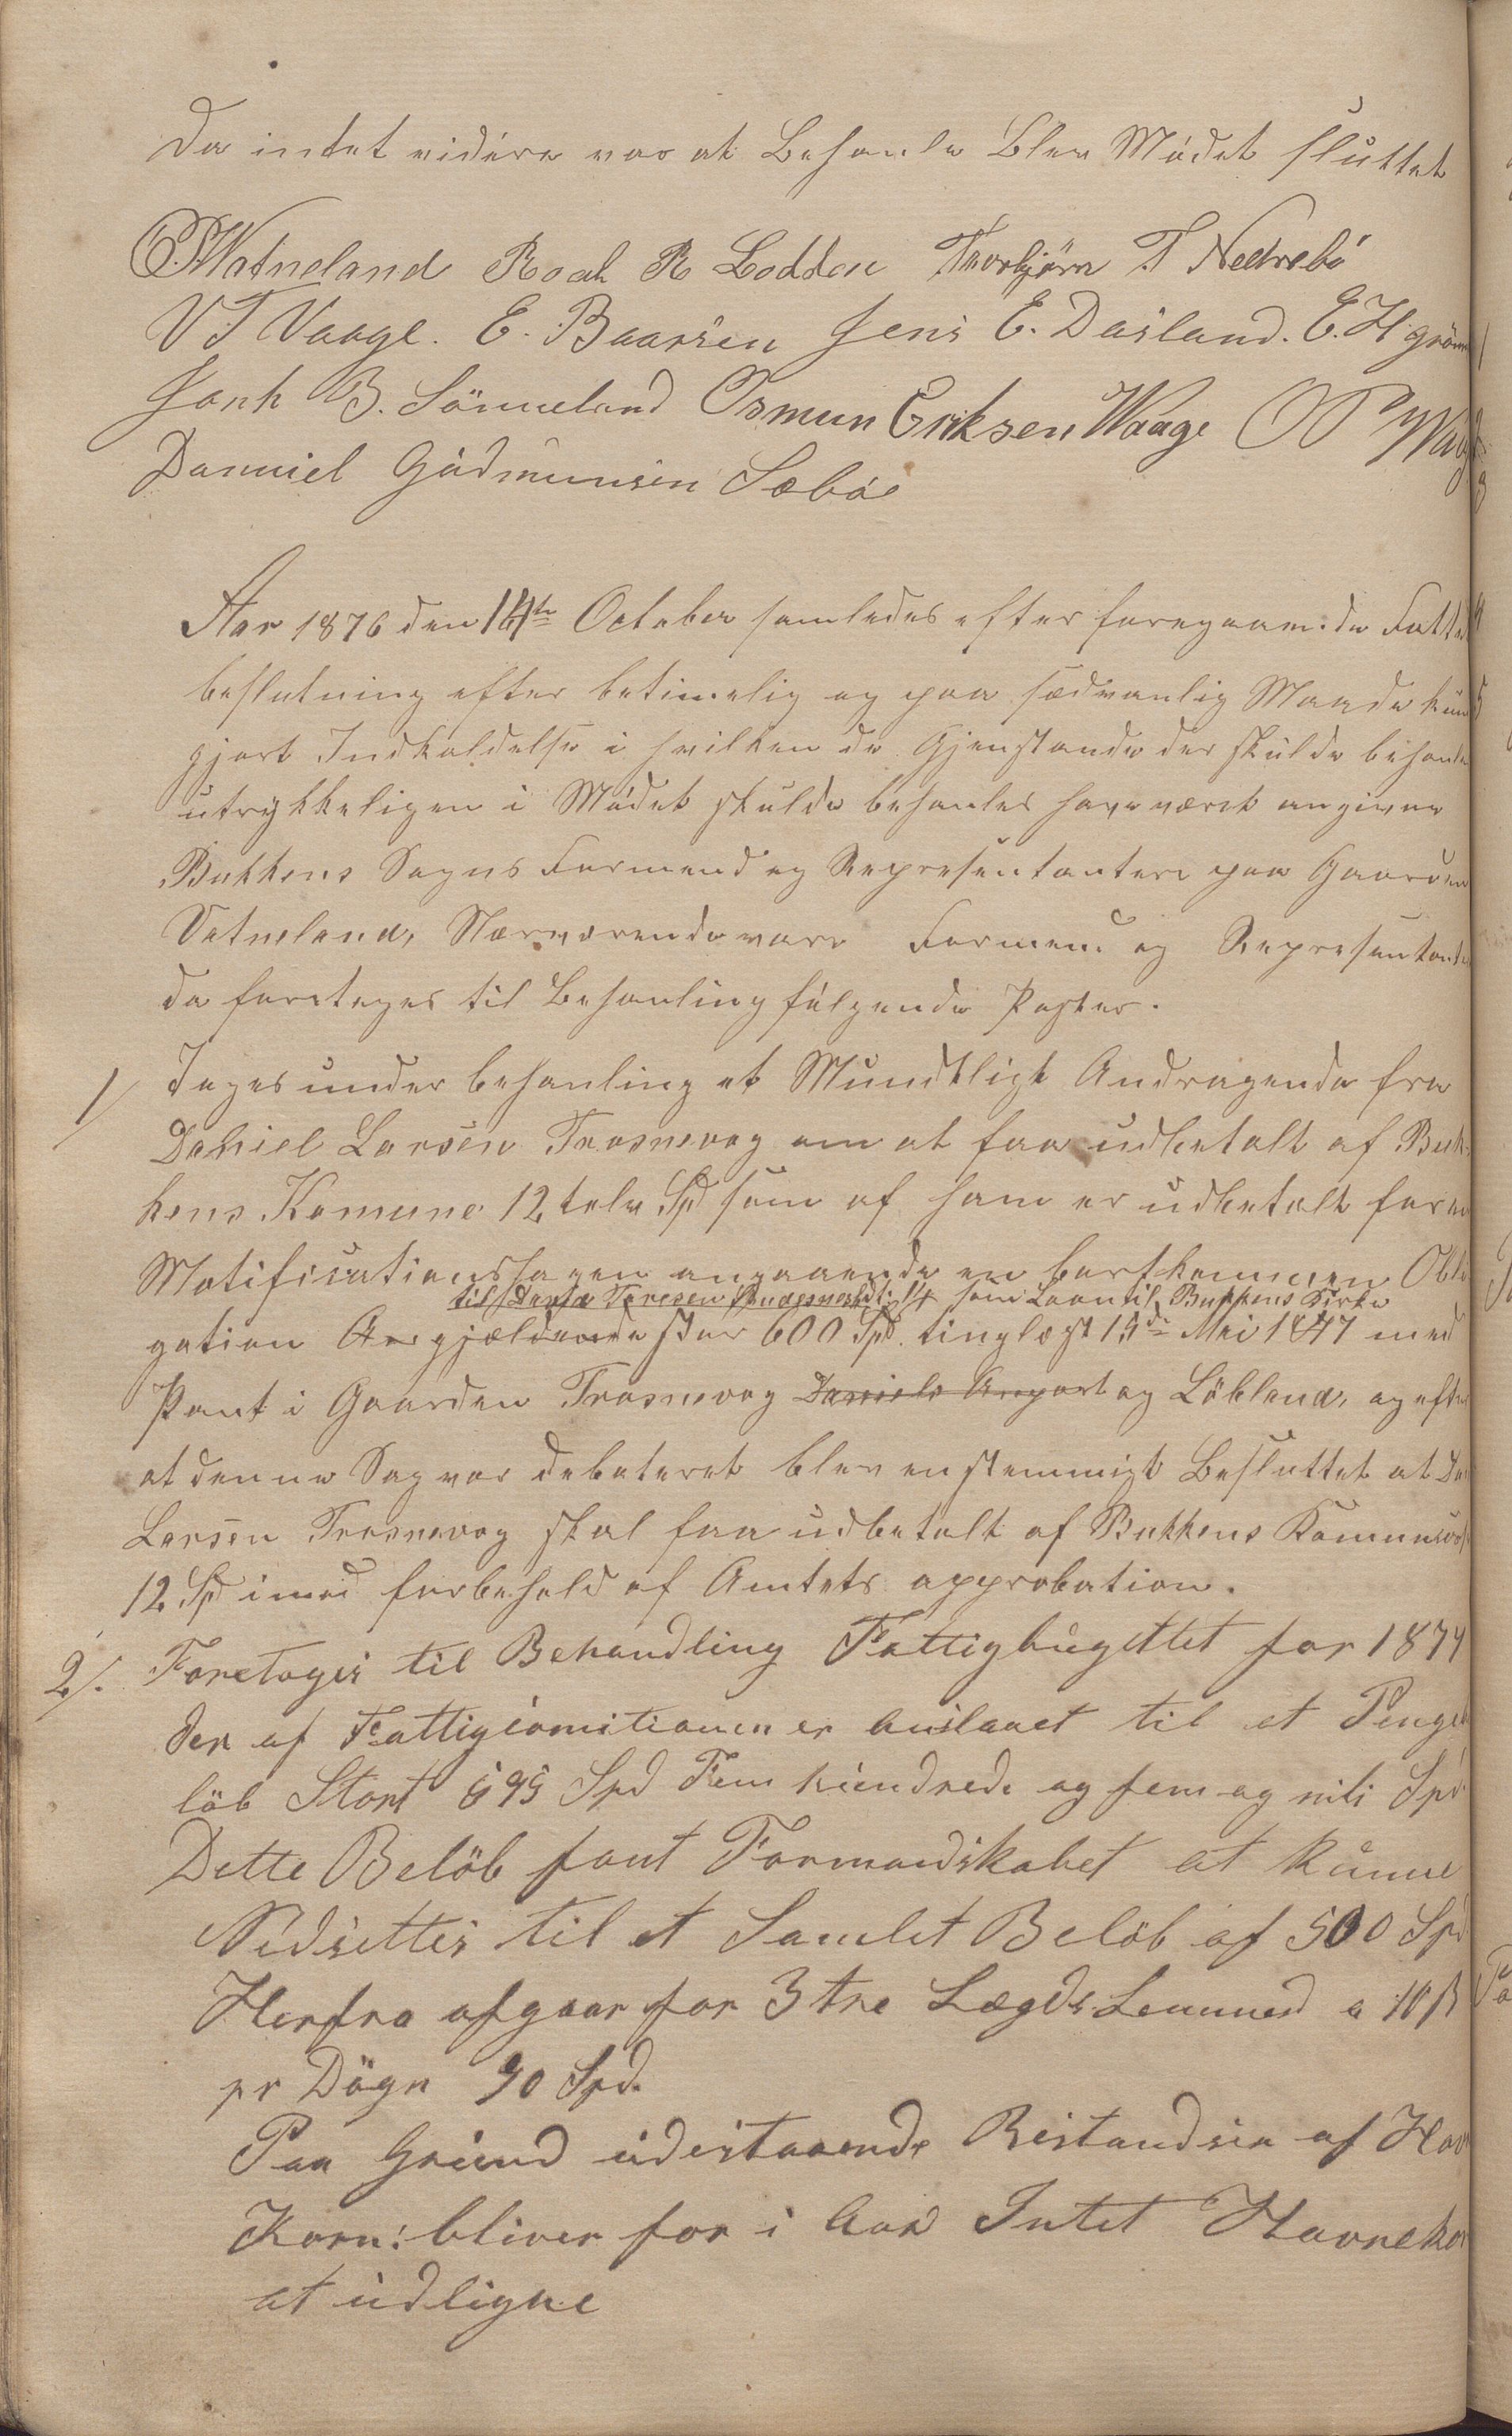 Da intet vidére var at Behanle Blev Mödet sluttet
Watneland Roal R Lodden Thorbjörn T Nedrebö
V T Vaage. E. Baarsen Jens E. Dasland. E. H grön
Jonh B. Sönneland Osmun Eriksen Waage O P Waag
Danniel Gudmunsen Sæbøe
Aar 1876 den 14de October samledes efter foregaaende Fatte
beslutning efter betimelig og paa sædvanlig Maade kund
gjort Indkaldelse i hvilken de Gjenstande der skulde behanle
utrykkeligen i Mödet skulde behanles have været angiven
Bukkens Sogns Formend og Representantere paa Gaarden
Vatneland, Nærværende vare Formend og Representante
da foretoges til Behanling fölgende Poster.
1/ Toges under behanling et Mundtligt Andragende fra
Daniel Larsen Trosnevag om at faa udbetalt af Buk-
kens Komune 12 tolv Spd som af ham er udbetalt for en
Motifications sagen angaaende en bortkommen Obli
til som Laan til Bukkens Kirke
gation gjældende stor 600 Spd. tinglæst 15de Mai 1847 med
Pant i Gaarden Trosnevag Daniels Anpart og Löbland, og efter
at denne Sag var debateret blev enstemmigt Besluttet at Da
Larsen Trosnevag skal faa udbetalt af Bukkens Komune
12 Spd imod forbehold af Amtets approbation.
2/. Foretoges til Behandling Fattigbugettet for 1877
der af Fattigcomitionen er anslaaet til et Penge
löb Stort 595 Spd Fem hundrede og fem og niti Spd
Dette Belöb fant Formandskabet at kunne
Nedsettes til et Samlet Belöb af 500 Spd
Herfra afgaar for 3 tre Lægds Lemmed a 10 ß
pr Dögn 90 Spd.
Paa Grund udestaaende Restandsen af Hav
Korn: bliver for i Aar Intet Havneko
at udligne